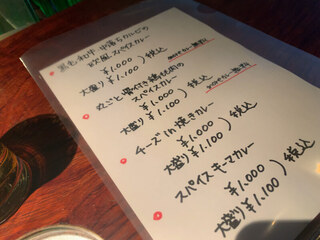 黒毛和牛 中落ちカルビの
欧風スパイスカレー
¥1.000
大盛り ¥1.100 ) 税込
丸ごと骨付き鶏もも肉の
スパイスカレー
¥1.000
大盛り ¥1.100 ) 税込
チーズin焼きカレー
¥1.000
大盛り ¥1.100 ) 税込
スパイスキーマカレー
¥1.000
大盛り ¥1.100 ) 税込